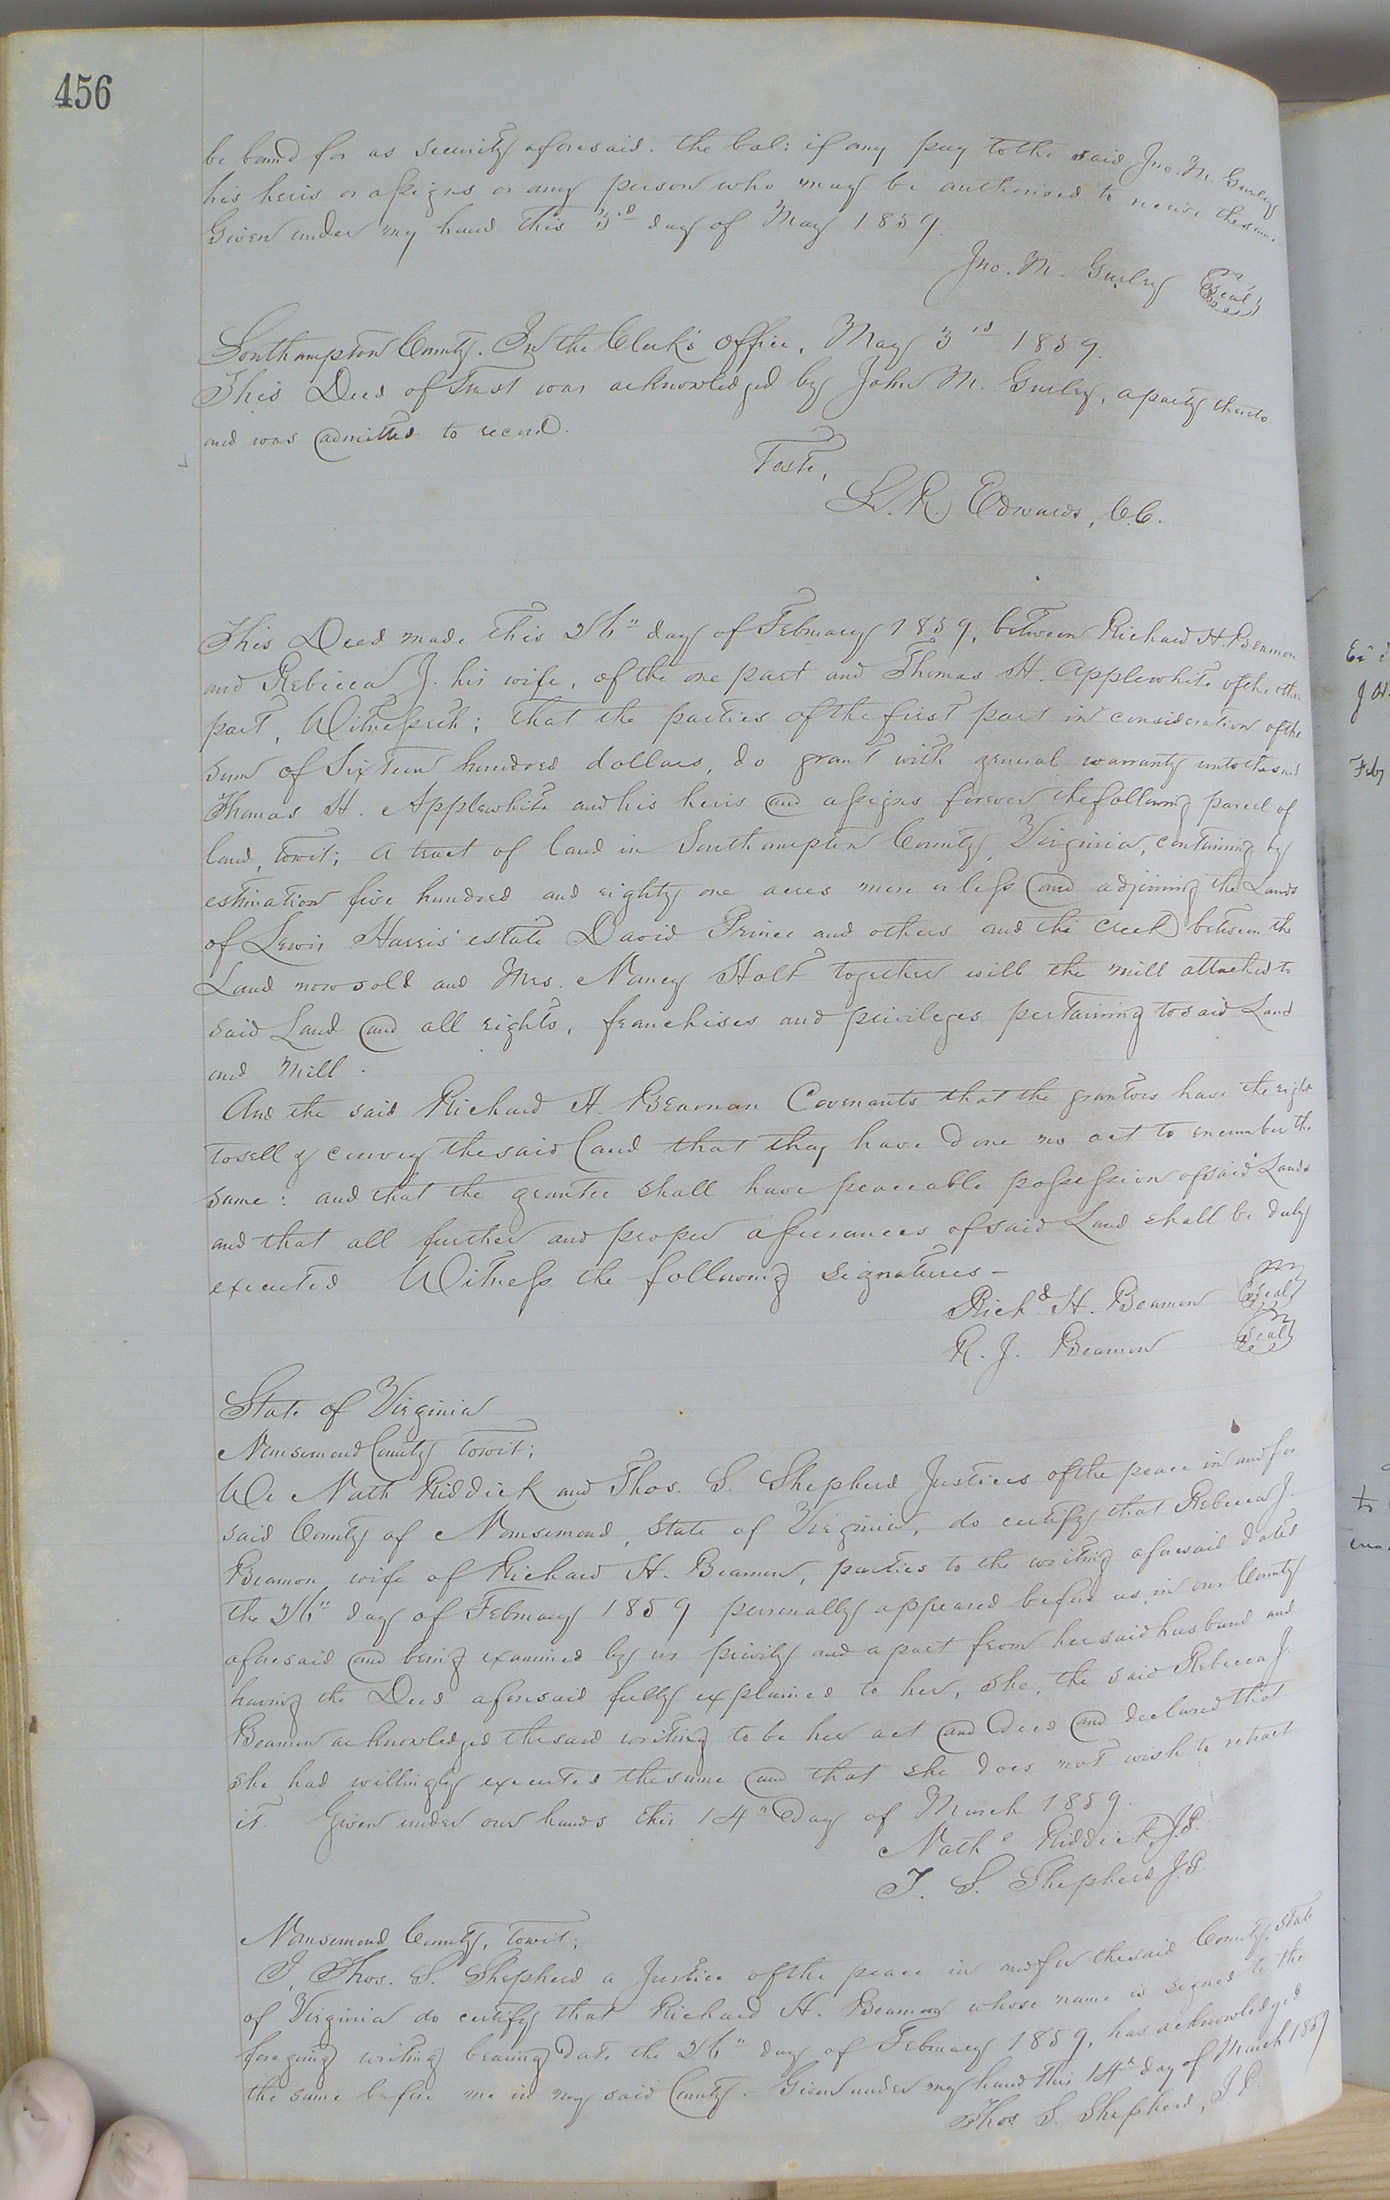 456
be bound for as security aforesaid. the bal: if any pay to the said Jno. M. Gurley
his heirs or assigns or any person who may be authorised to receive the same.
Given under my hand this 3rd day of May 1859.
Jno. M. Gurley Seal
Southampton County. In the Clerk's Office, May 3rd 1859.
This Deed of Trust was acknowledged by John M. Gurley, a party thereto
and was admitted to record.
Teste,
L. R. Edwards, C.C.
This Deed made this 26th day of February 1859, between Richard H. Beamon
and Rebecca J. his wife, of the one part and Thomas H. Applewhite of the other
part, Witnesseth; that the parties of the first part in consideration of the
sum of Sixteen hundred dollars, do grant with general warranty unto the said
Thomas H. Applewhite and his heirs and assigns forever the following parcel of
land, towit; a tract of land in Southampton County, Virginia, containing by
estimation five hundred and eighty one acres more or less and adjoining the Lands
of Lewis Harris' estate David Prince and others and the creek between the
Land now sold and Mrs. Nancy Holt together will the mill attached to
said Land and all rights, franchises and privileges pertaining to said Land
and Mill.
And the said Richard H. Beaman Covenants that the grantors have the right
to sell & convey the said land that they have done no act to encumber the
same: and that the grantee shall have peaceable possession of said Lands
and that all further and proper assurances of said Land shall be duly
executed Witness the following signatures—
Richd H. Beamon Seal
R. J. Beamon Seal
State of Virginia
Nansemond County towit;
We Nath Riddick and Thos. S. Shepherd Justices of the peace in and for
said County of Nansemond, State of Virginia, do certify that Rebecca J.
Beamon wife of Richard H. Beamon, parties to the writing aforesaid dated
the 26th day of February 1859 personally appeared before us in our County
aforesaid and being examined by us privily and apart from her said husband and
having the Deed aforesaid fully explained to her, she, the said Rebecca J.
Beamon acknowledged the said writing to be her act and Deed and declared that
she had willingly executed the same and that she does not wish to retract
it. Given under our hands this 14th Day of March 1859.
Nathl Riddick, J.P.
T. S. Shepherd J.P.
Nansemond County, towit;
I, Thos. S. Shepherd a Justice of the peace in and for the said County, State
of Virginia do certify that Richard H. Beamon whose name is signed to the
foregoing writing bearing Date the 26th day of February 1859, has acknowledged
the same before me in my said County. Given under my hand this 14th day of March 1859
Thos S. Shepherd, J.P.